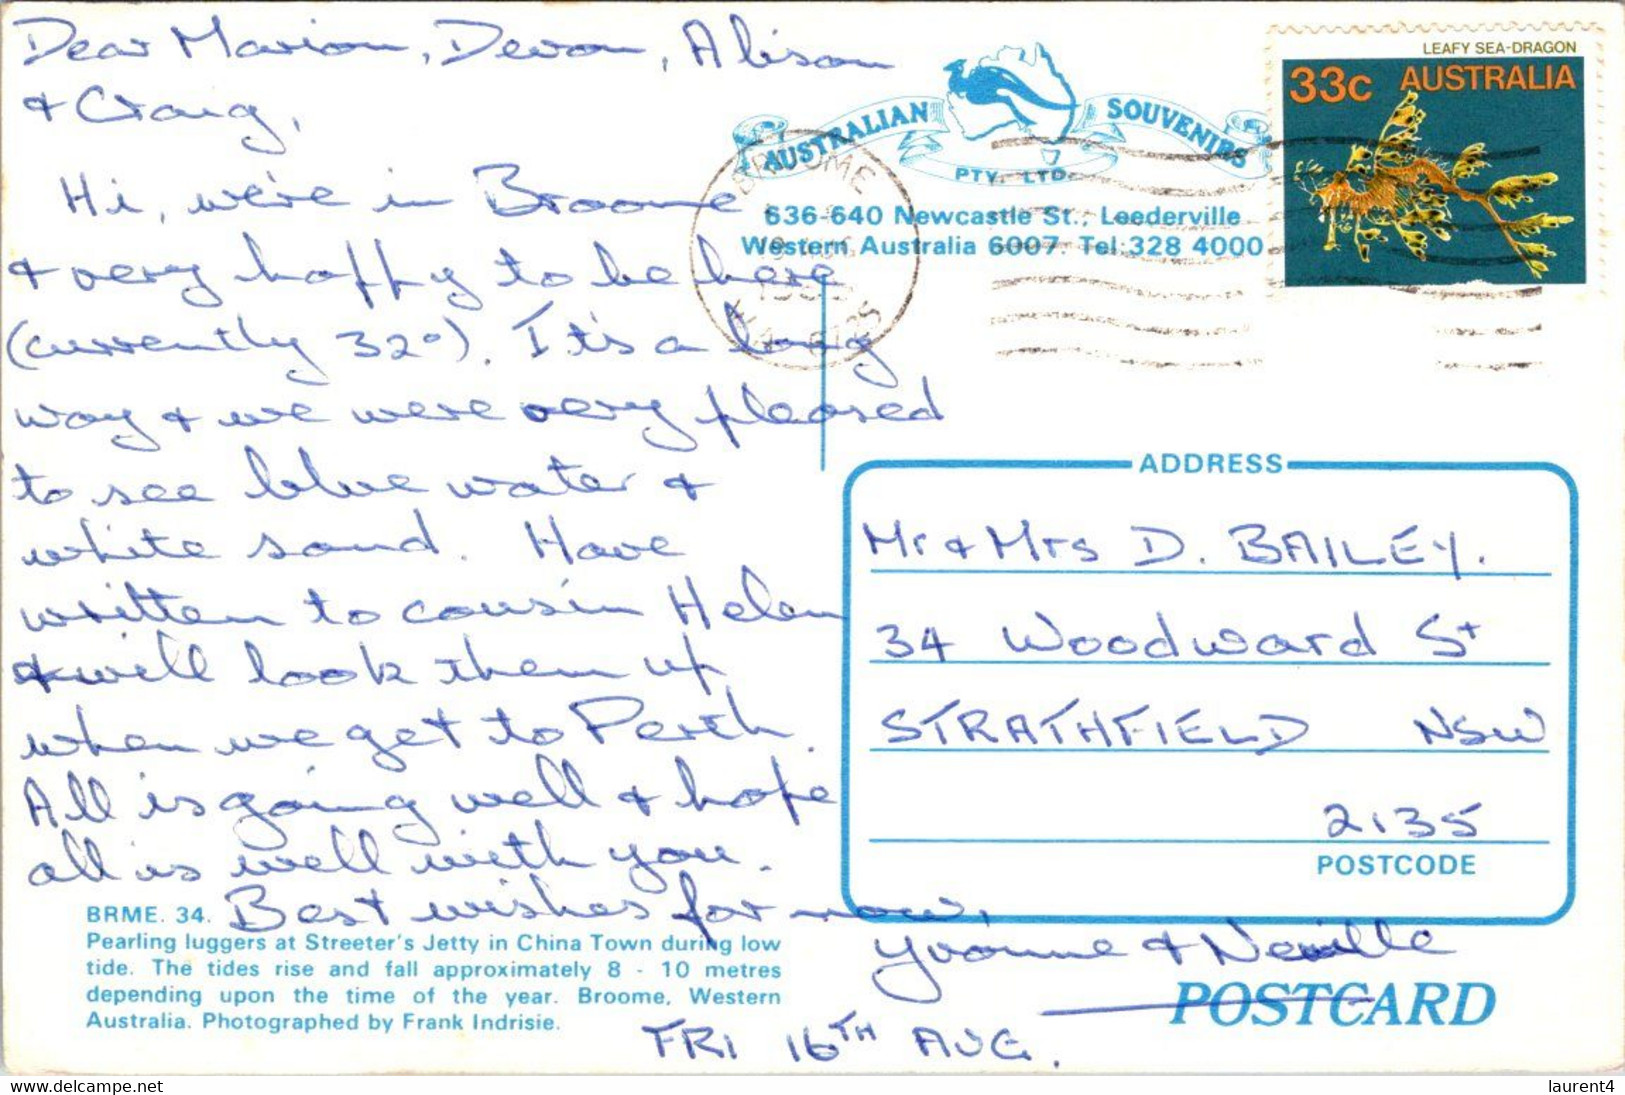 Dear Marion, Devon, Alison
& Craig,
Hi, we're in Broome
& very happy to be here
(currently 32°). It's a long
way & we were very pleased
to see blue water &
white sand. Have
written to cousin Helen
& will look them up
when we get to Perth.
All is going well & hope
all is well with you.
Best wishes for now,
Yvonne & Neville
FRI 16TH AUG.
BRME. 34.
Pearling luggers at Streeter's Jetty in China Town during low
tide. The tides rise and fall approximately 8 - 10 metres
depending upon the time of the year. Broome, Western
Australia. Photographed by Frank Indrisie.
AUSTRALIAN SOUVENIRS
PTY. LTD.
636-640 Newcastle St., Leederville
Western Australia 6007. Tel: 328 4000
LEAFY SEA-DRAGON
33c AUSTRALIA
BROOME
6725
ADDRESS
Mr & Mrs D. BAILEY.
34 Woodward St
STRATHFIELD NSW
2135
POSTCODE
POSTCARD
laurent4
delcampe.net